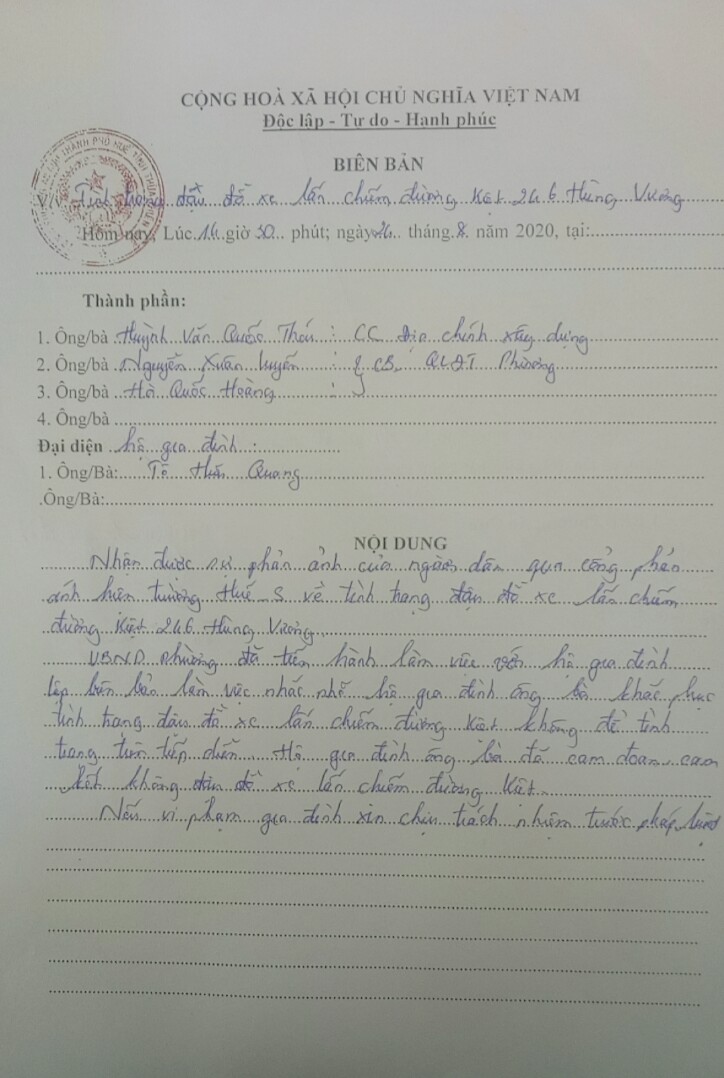 CỘNG HOÀ XÃ HỘI CHỦ NGHĨA VIỆT NAM
Độc lập - Tự do - Hạnh phúc
BIÊN BẢN
V/v Tình trạng đậu đỗ xe lấn chiếm đường Kiệt 246 Hùng Vương
Hôm nay, Lúc 14 giờ 30 phút; ngày 24 tháng 8 năm 2020, tại:
Thành phần:
1. Ông/bà Huỳnh Văn Quốc Thái : CC Địa chính xây dựng
2. Ông/bà Nguyễn Xuân Luyến : } CB QLĐT Phường
3. Ông/bà Hồ Quốc Hoàng : }
4. Ông/bà
Đại diện hộ gia đình :
1. Ông/Bà: Tô Hữu Quang
.Ông/Bà:
NỘI DUNG
Nhận được sự phản ảnh của người dân qua cổng phản
ánh hiện trường Huế S về tình trạng đậu đỗ xe lấn chiếm
đường Kiệt 246 Hùng Vương.
UBND phường đã tiến hành làm việc với hộ gia đình
lập biên bản làm việc nhắc nhở hộ gia đình ông bà khắc phục
tình trạng đậu đỗ xe lấn chiếm đường Kiệt không để tình
trạng trên tiếp diễn. Hộ gia đình ông bà đã cam đoan cam
kết không đậu đỗ xe lấn chiếm đường Kiệt.
Nếu vi phạm gia đình xin chịu trách nhiệm trước pháp luật